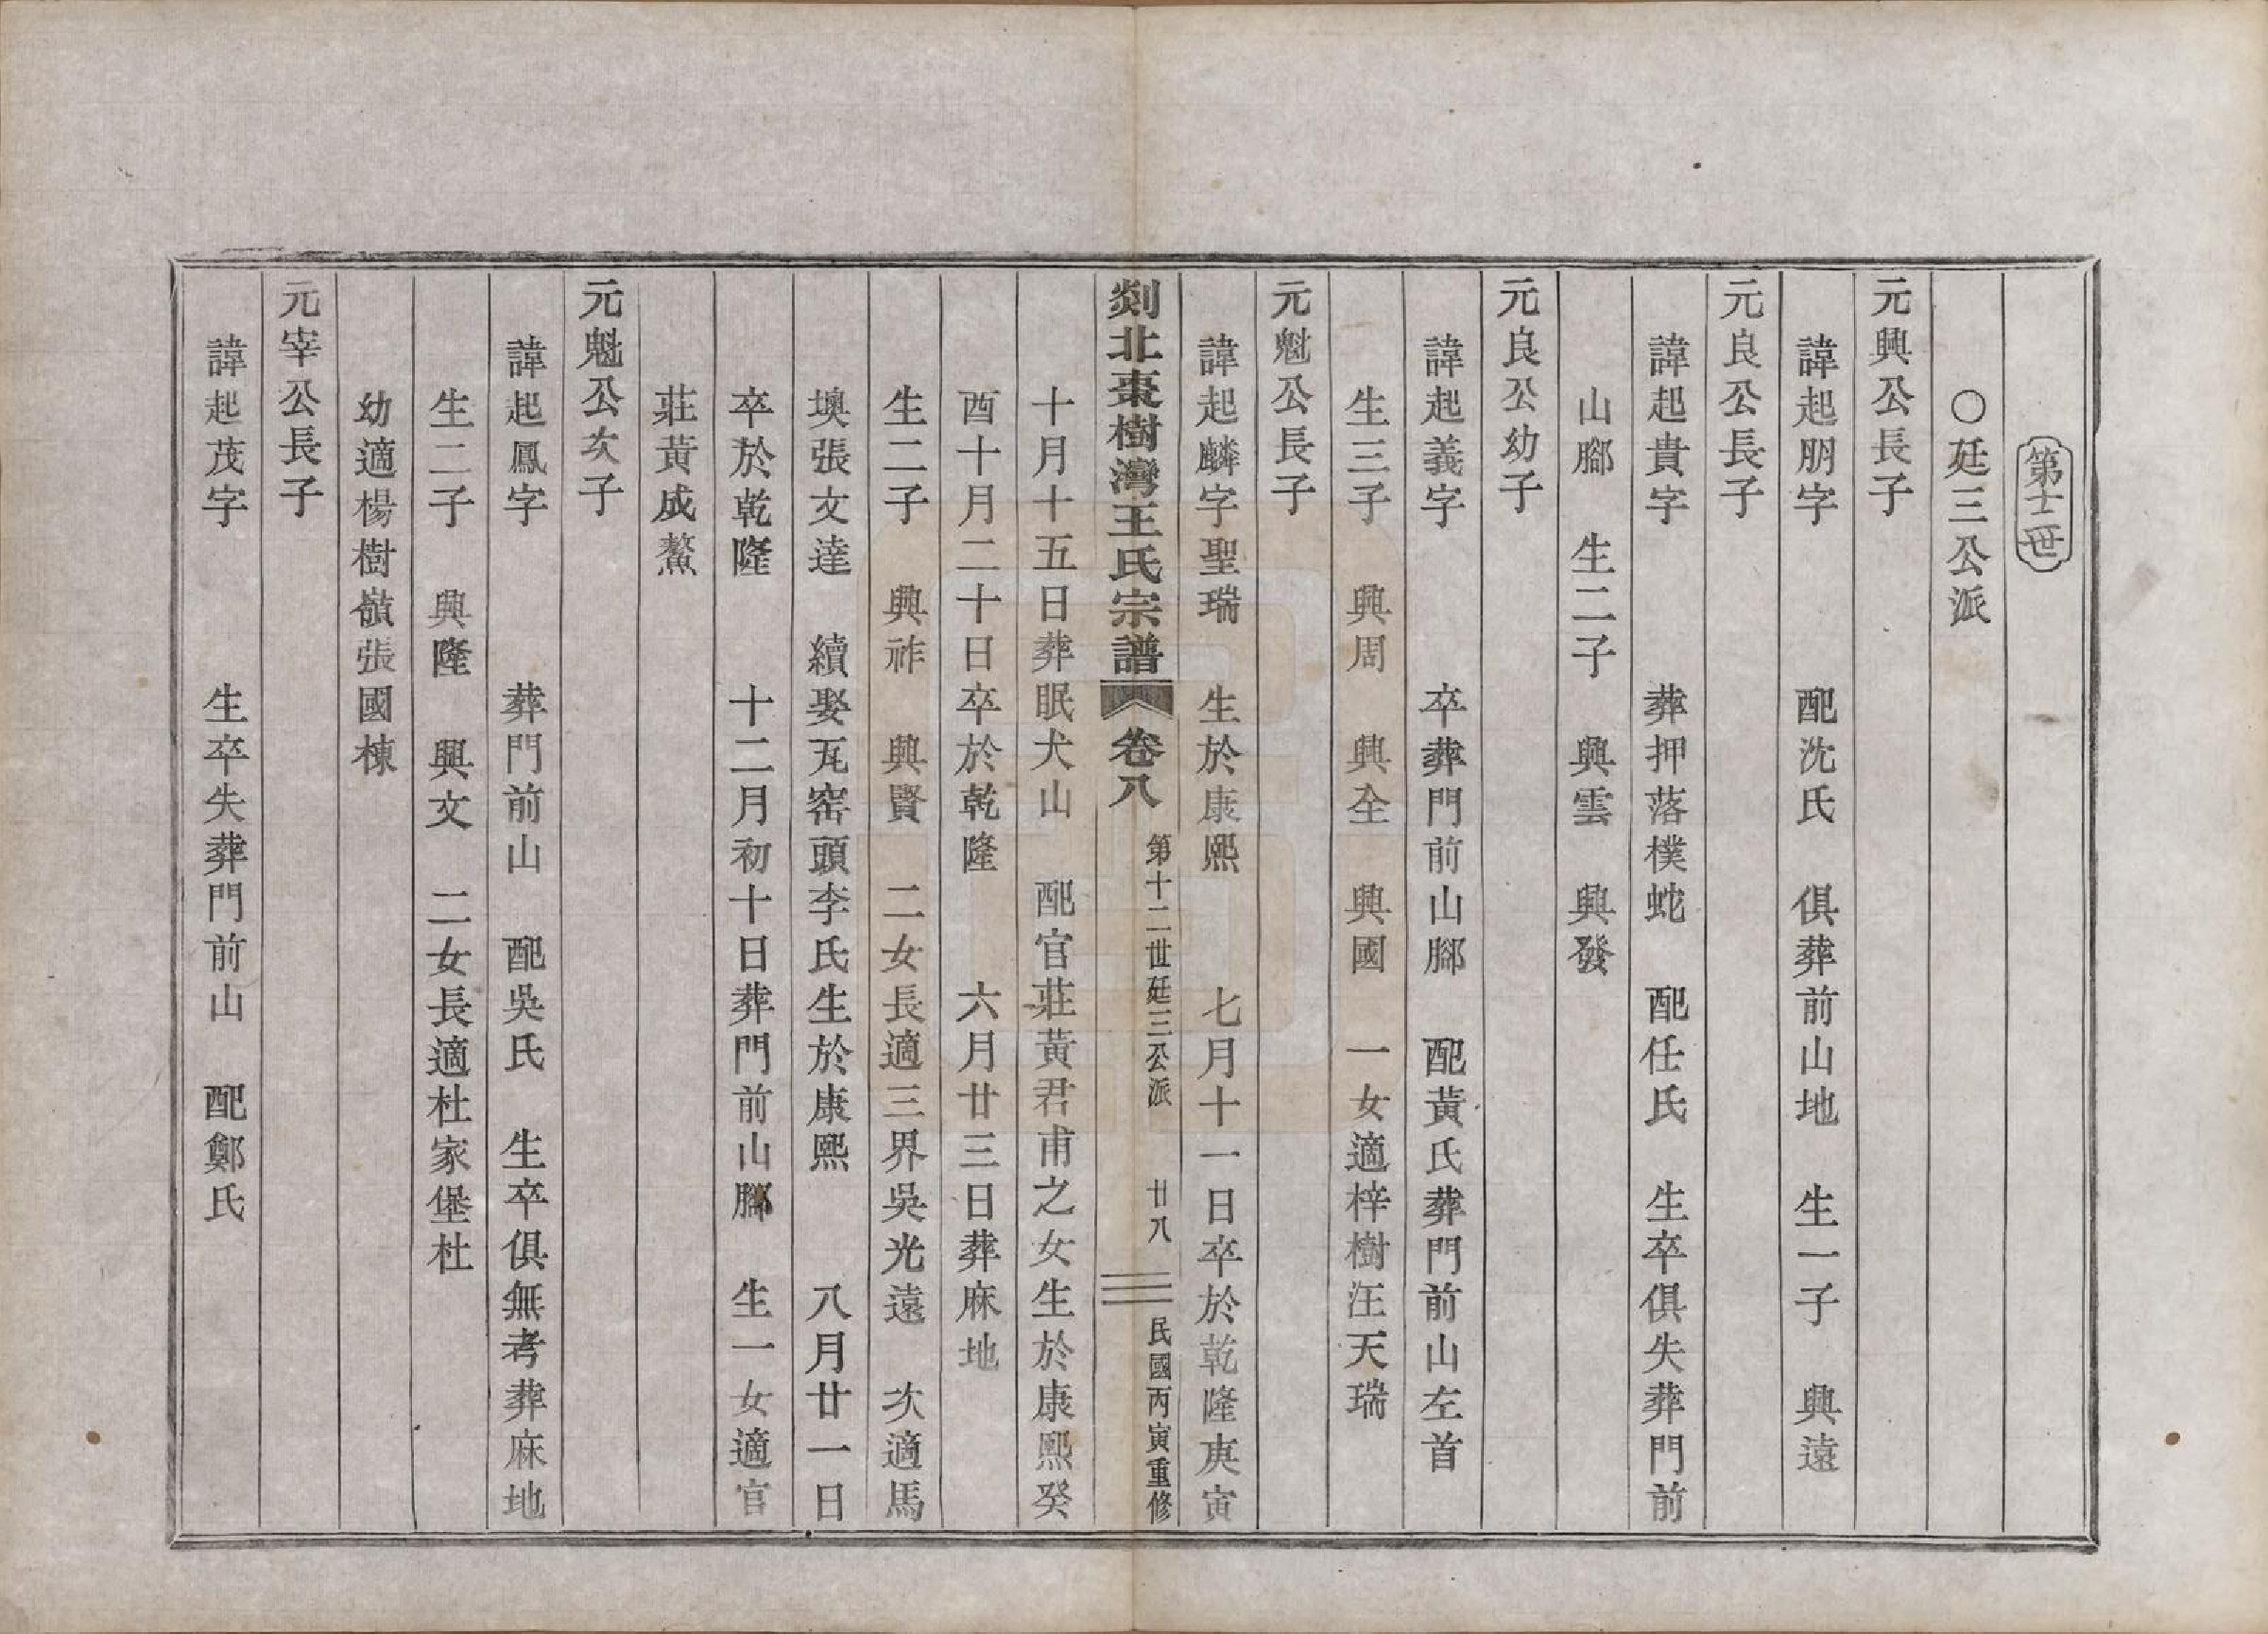 第十二世
〇廷三公派
元興公長子
諱起朋字　配沈氏　俱葬前山地　生一子　興遠
元良公長子
諱起貴字　葬押落樸蛇　配任氏　生卒俱失葬門前
山腳　生二子　興雲　興發
元良公幼子
諱起義字　卒葬門前山腳　配黃氏葬門前山左首
生三子　興周　興全　興國　一女適梓樹汪天瑞
元魁公長子
諱起麟字聖瑞　生於康熙　七月十一日卒於乾隆庚寅
剡北棗樹灣王氏宗譜　卷八　第十二世廷三公派　廿八　民國丙寅重修
十月十五日葬眠犬山　配官莊黃君甫之女生於康熙癸
酉十月二十日卒於乾隆　六月廿三日葬麻地
生二子　興祚　興賢　二女長適三界吳光遠　次適馬
墺張文達　續娶瓦窑頭李氏生於康熙　八月廿一日
卒於乾隆　十二月初十日葬門前山腳　生一女適官
莊黃成鰲
元魁公次子
諱起鳳字　葬門前山　配吳氏　生卒俱無考葬麻地
生二子　興隆　興文　二女長適杜家堡杜
幼適楊樹嶺張國棟
元宰公長子
諱起茂字　生卒失葬門前山　配鄭氏